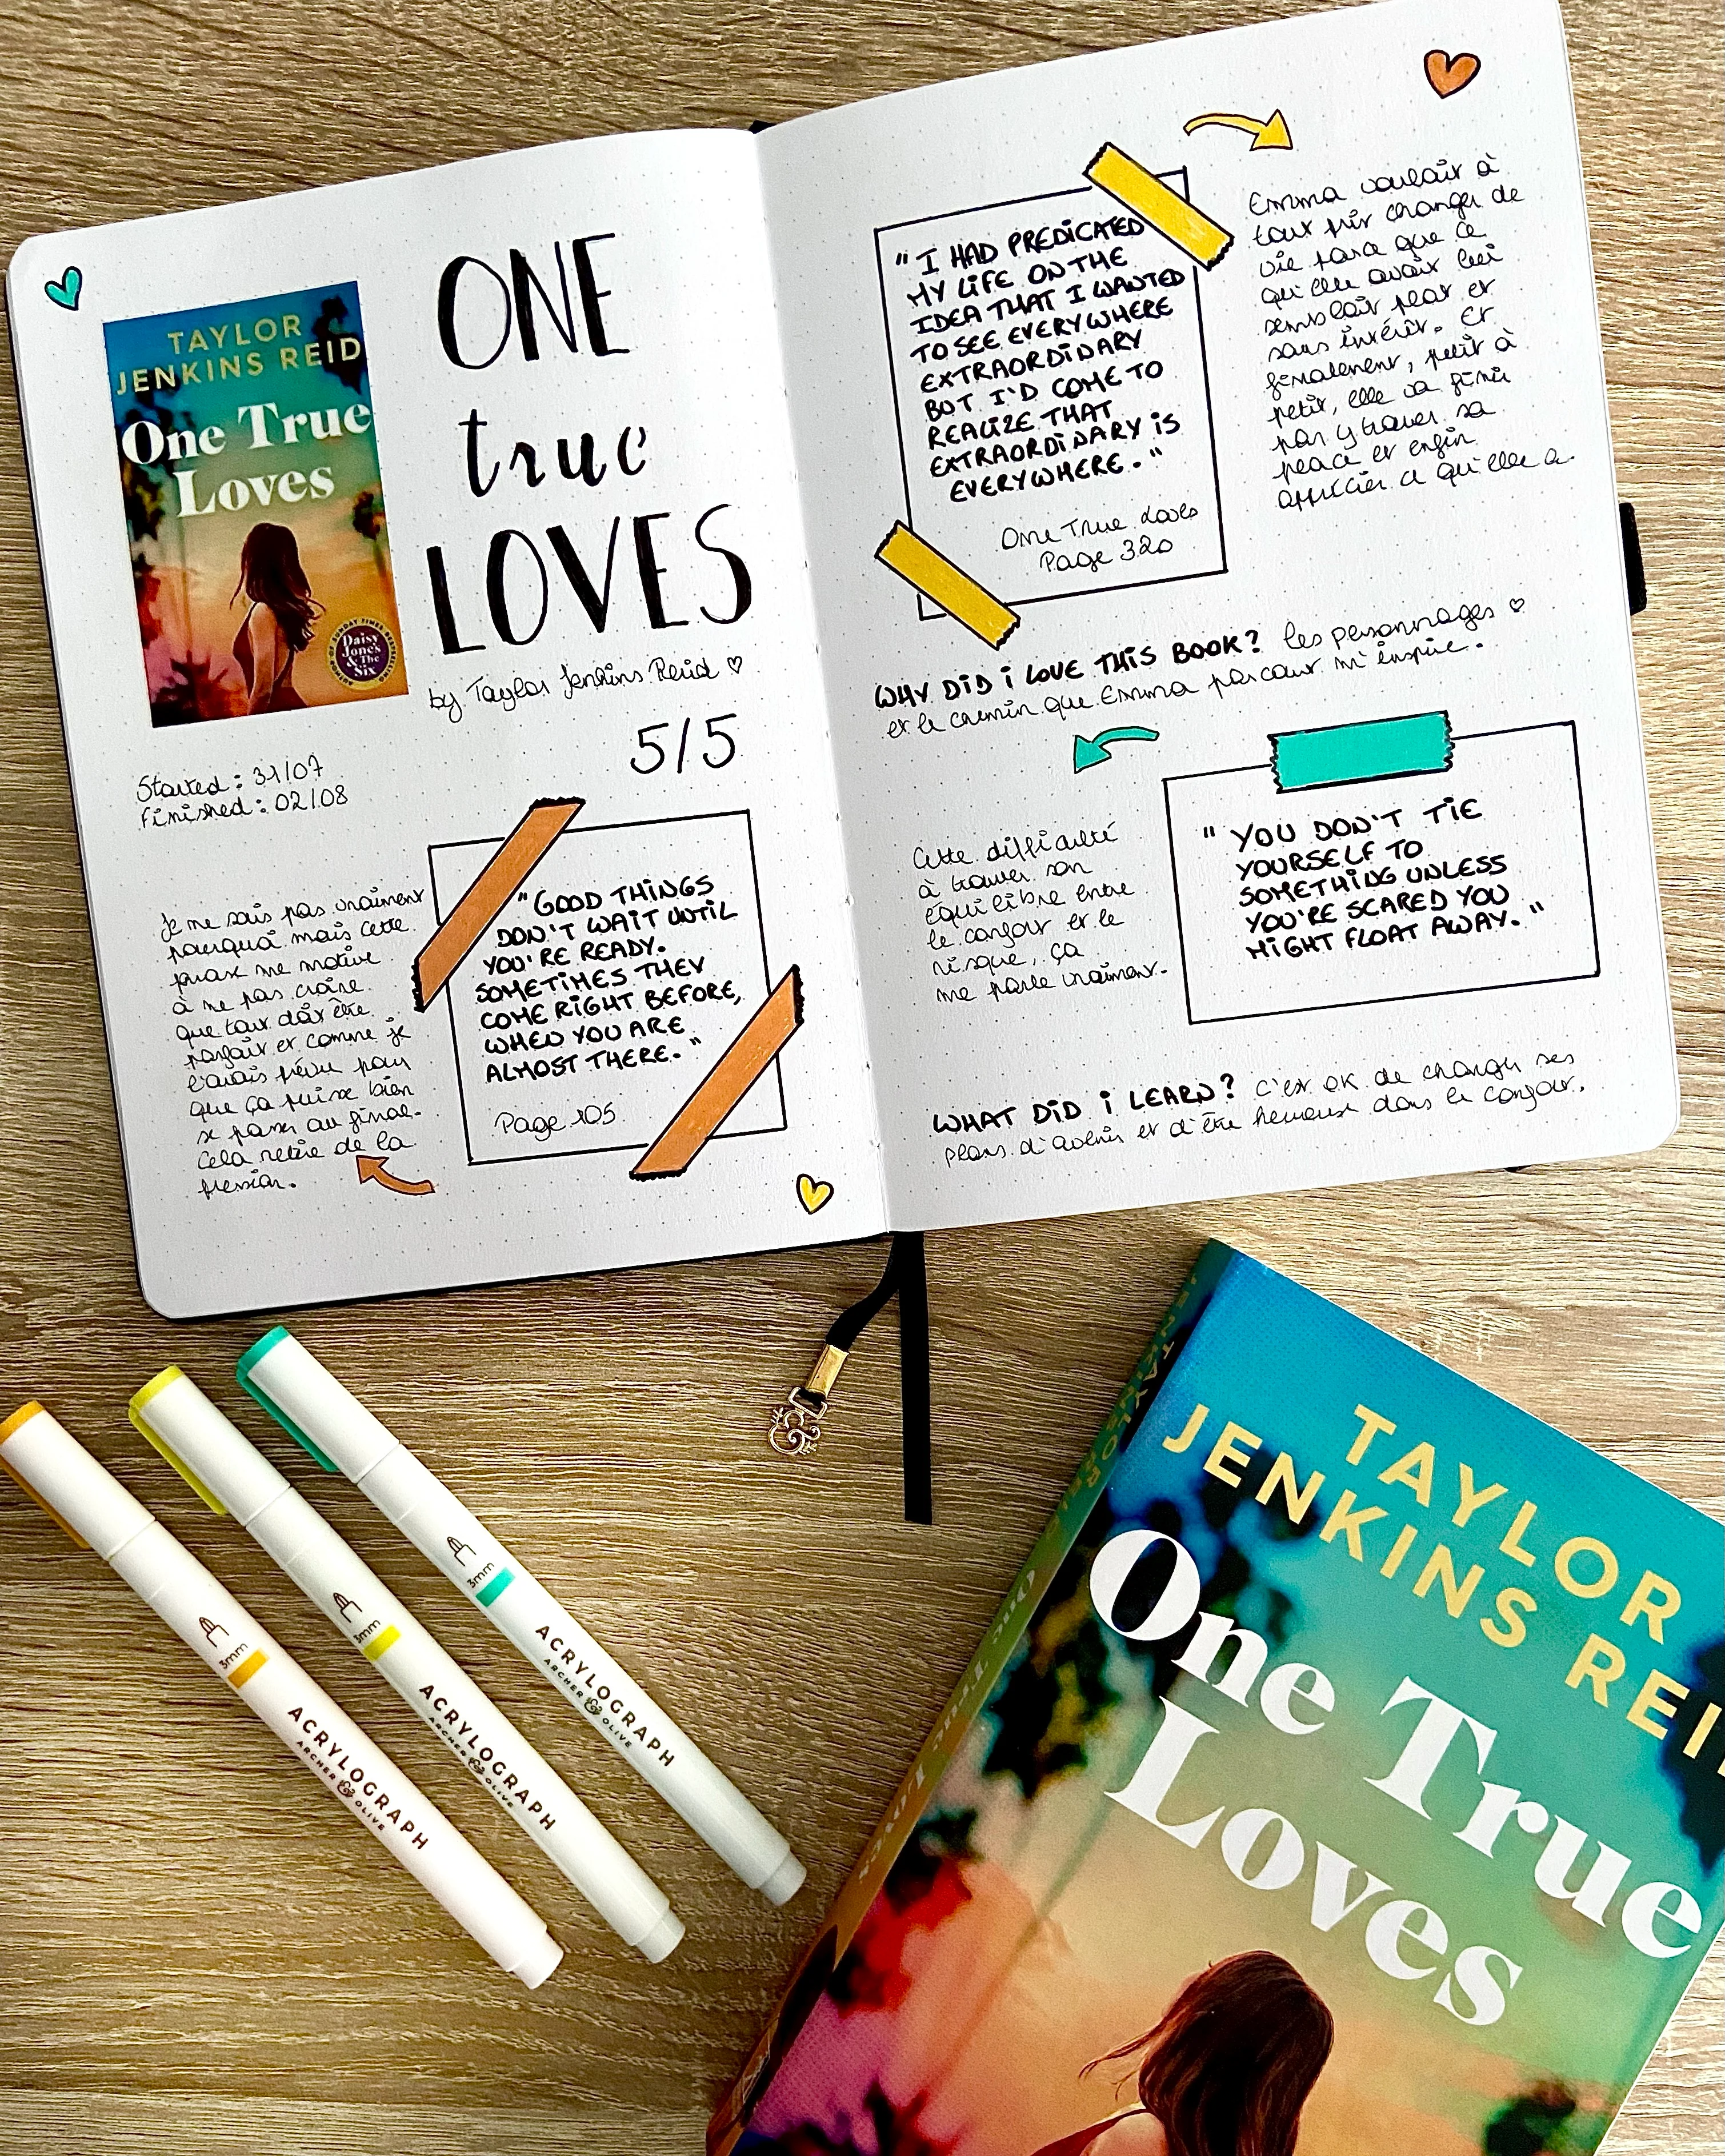 TAYLOR
JENKINS REID
One True
Loves
AUTHOR OF SUNDAY TIMES BESTSELLING
Daisy
Jones
& The
Six
ONE
true
LOVES
by Taylor Jenkins Reid
5/5
Started : 31/07
Finished : 02/08
Je ne sais pas vraiment
pourquoi mais cette
phrase me motive
à ne pas croire
que tout doit être
parfait et comme je
l'avais prévu pour
que ça puisse bien
se passer au final.
Cela retire de la
pression.
"GOOD THINGS
DON'T WAIT UNTIL
YOU'RE READY.
SOMETIMES THEY
COME RIGHT BEFORE,
WHEN YOU ARE
ALMOST THERE."
Page 105
"I HAD PREDICATED
MY LIFE ON THE
IDEA THAT I WANTED
TO SEE EVERYWHERE
EXTRAORDINARY
BUT I'D COME TO
REALIZE THAT
EXTRAORDINARY IS
EVERYWHERE."
One True Loves
Page 320
Emma voulait à
tout prix changer de
vie parce que ce
qu'elle avait lui
semblait plat et
sans intérêt. Et
finalement, petit à
petit, elle va finir
par y trouver sa
place et enfin
apprécier ce qu'elle a.
WHY DID I LOVE THIS BOOK? les personnages
et le chemin que Emma parcourt m'inspire.
Cette difficulté
à trouver son
équilibre entre
le confort et le
risque, ça
me parle vraiment.
"YOU DON'T TIE
YOURSELF TO
SOMETHING UNLESS
YOU'RE SCARED YOU
MIGHT FLOAT AWAY."
WHAT DID I LEARN? C'est OK de changer ses
plans d'avenir et d'être heureux dans le confort.
3mm
ACRYLOGRAPH
ARCHER & OLIVE
3mm
ACRYLOGRAPH
ARCHER & OLIVE
3mm
ACRYLOGRAPH
ARCHER & OLIVE
TAYLOR
JENKINS REI
One True
Loves
One True Loves